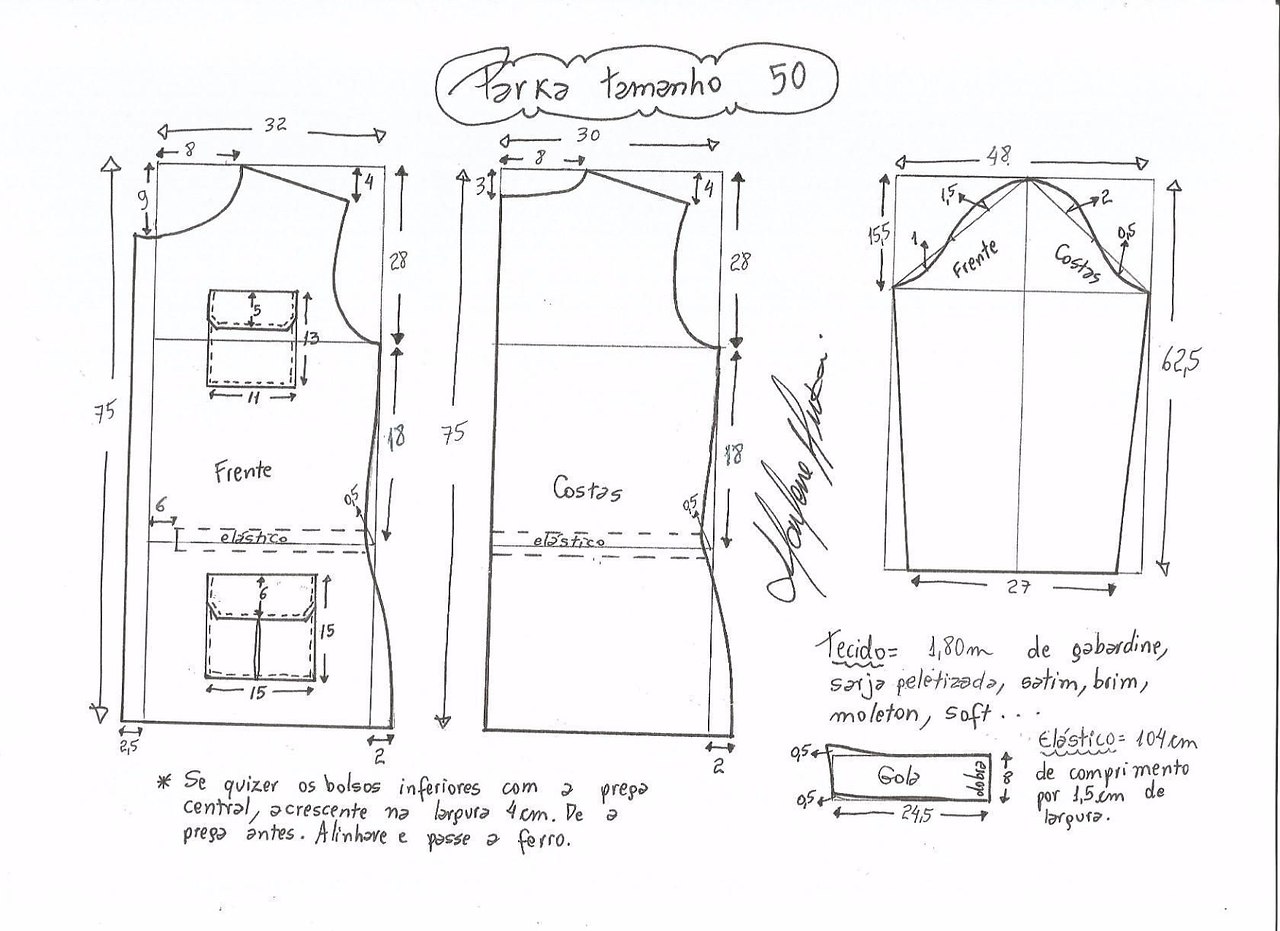 Parka tamanho 50
32
8
9
4
28
75
5
13
11
18
Frente
0,5
6
elástico
6
15
15
2,5
2
30
8
3
4
28
75
18
Costas
0,5
elástico
2
48
15,5
1,5
2
1
0,5
Frente
Costas
62,5
27
Tecido= 1,80m de gabardine,
sarja peletizada, satim, brim,
moleton, soft...
Elástico= 104cm
de comprimento
por 1,5cm de
largura.
0,5
Gola
dobra
8
0,5
24,5
* Se quizer os bolsos inferiores com a prega
central, acrescente na largura 4cm. De a
prega antes. Alinhave e passe a ferro.